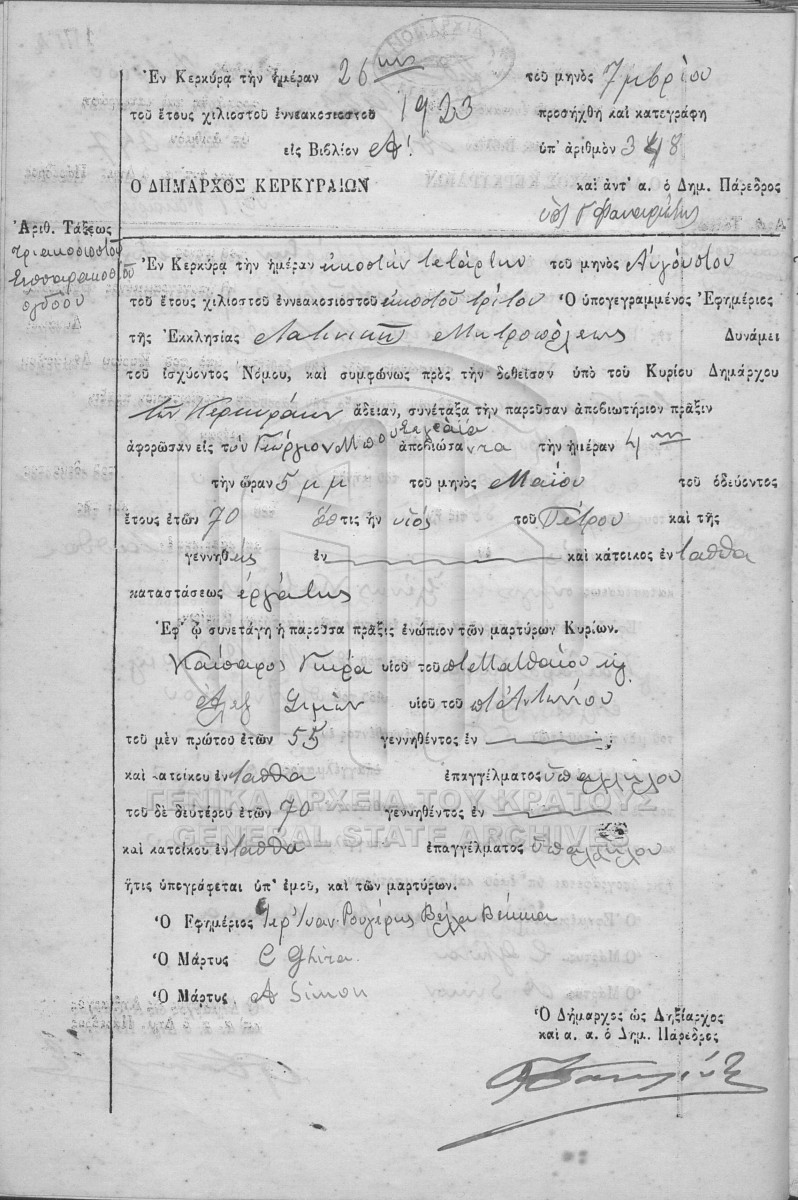 Ἐν Κερκύρᾳ τὴν ἡμέραν 26ην τοῦ μηνὸς 7μβρίου
τοῦ ἔτους χιλιοστοῦ ἐννεακοσιοστοῦ 1923 προσήχθη καὶ κατεγράφη
εἰς Βιβλίον Α'. ὑπ' ἀριθμὸν 348
Ο ΔΗΜΑΡΧΟΣ ΚΕΡΚΥΡΑΙΩΝ καὶ ἀντ' α. ὁ Δημ. Πάρεδρος
Ἀριθ. Τάξεως
τριακοσιοστοῦ
τεσσαρακοστοῦ
ὀγδόου
Ἐν Κερκύρᾳ τὴν ἡμέραν εἰκοστὴν τετάρτην τοῦ μηνὸς Αὐγούστου
τοῦ ἔτους χιλιοστοῦ ἐννεακοσιοστοῦ εἰκοστοῦ τρίτου Ὁ ὑπογεγραμμένος Ἐφημέριος
τῆς Ἐκκλησίας Λατινικῆς Μητροπόλεως Δυνάμει
τοῦ ἰσχύοντος Νόμου, καὶ συμφώνως πρὸς τὴν δοθεῖσαν ὑπὸ τοῦ Κυρίου Δημάρχου
τῶν Κερκυραίων ἄδειαν, συνέταξα τὴν παροῦσαν ἀποβιωτήριον πρᾶξιν
ἀφορῶσαν εἰς τὸν Γεώργιον ἀποβιώσαντα τὴν ἡμέραν 4ην
τὴν ὥραν 5 μμ τοῦ μηνὸς Μαΐου τοῦ ὁδεύοντος
ἔτους ἐτῶν 70 ὅστις ἦν υἱὸς τοῦ Πέτρου καὶ τῆς
γεννηθεὶς ἐν καὶ κάτοικος ἐν ἐνταῦθα
καταστάσεως ἐργάτης
Ἐφ' ᾧ συνετάγη ἡ παροῦσα πρᾶξις ἐνώπιον τῶν μαρτύρων Κυρίων.
Καίσαρος Γκίρα υἱοῦ τοῦ ποτὲ Ματθαίου
Ἀλεξ Σιμὼν υἱοῦ τοῦ ποτὲ Ἀντωνίου
τοῦ μὲν πρώτου ἐτῶν 55 γεννηθέντος ἐν
καὶ κατοίκου ἐν ἐνταῦθα ἐπαγγέλματος ὑπαλλήλου
ΓΕΝΙΚΑ ΑΡΧΕΙΑ ΤΟΥ ΚΡΑΤΟΥΣ
τοῦ δὲ δευτέρου ἐτῶν 70 γεννηθέντος ἐν
GENERAL STATE ARCHIVES
καὶ κατοίκου ἐν ἐνταῦθα ἐπαγγέλματος ὑπαλλήλου
ἥτις ὑπογράφεται ὑπ' ἐμοῦ, καὶ τῶν μαρτύρων.
Ὁ Ἐφημέριος Ἱερ. Ἰωαν. Ρουγέρης Βέλλα Βέκκια
Ὁ Μάρτυς C Ghira
Ὁ Μάρτυς A Simon
Ὁ Δήμαρχος ὡς Ληξίαρχος
καὶ α. α. ὁ Δημ. Πάρεδρος